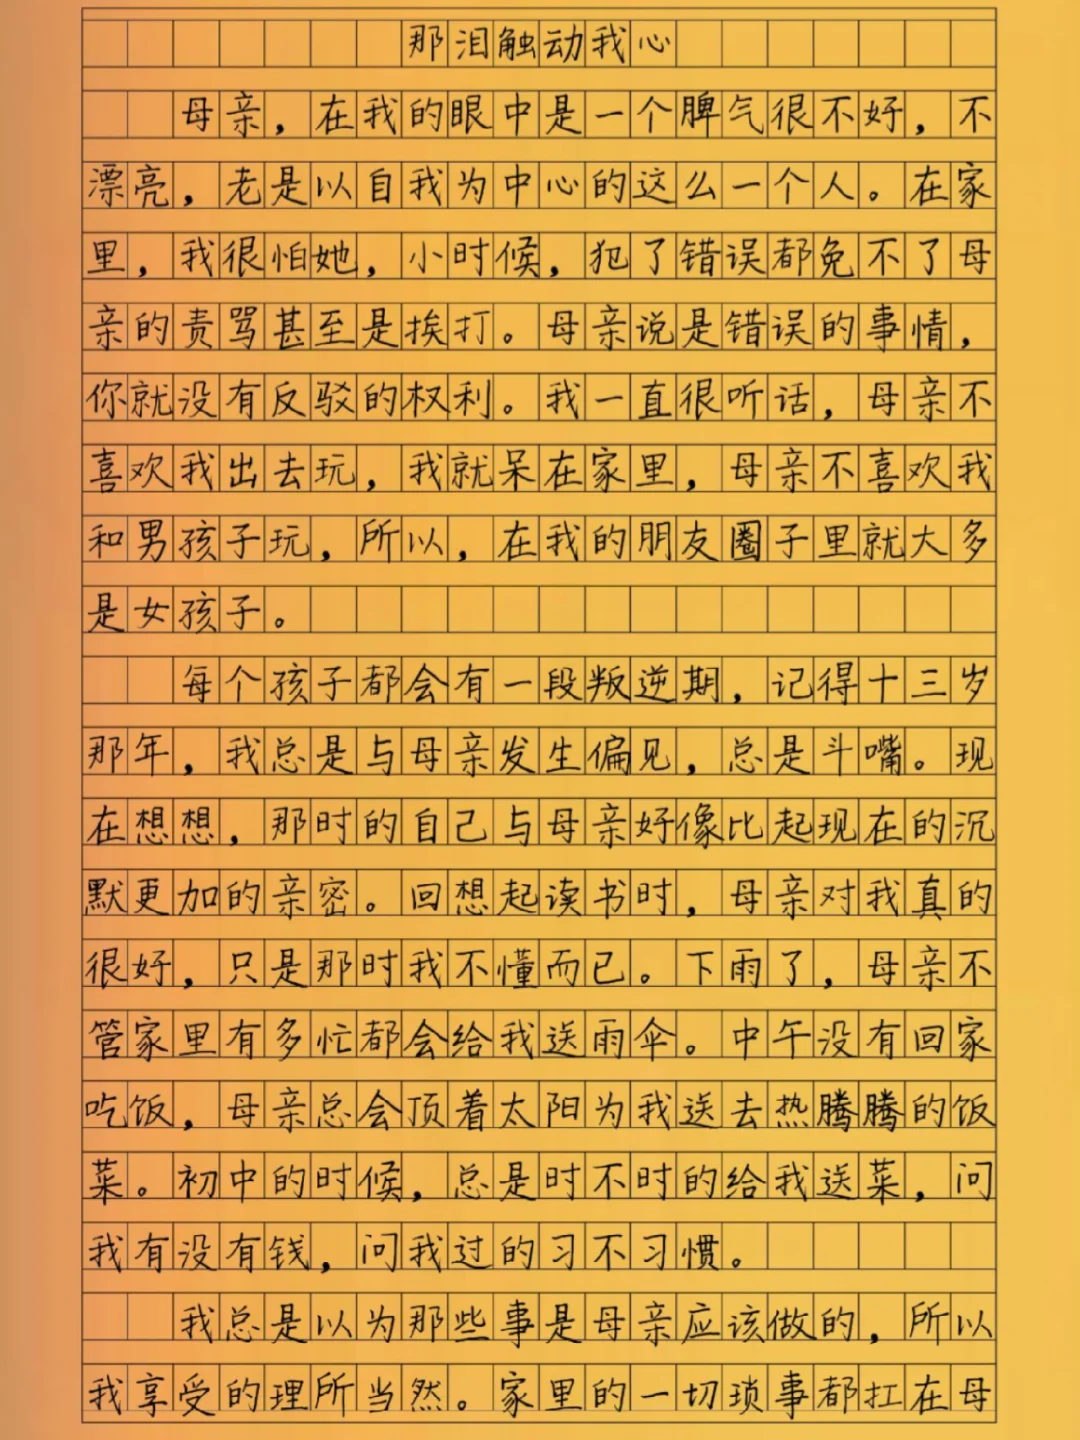 那泪触动我心
母亲，在我的眼中是一个脾气很不好，不
漂亮，老是以自我为中心的这么一个人。在家
里，我很怕她，小时候，犯了错误都免不了母
亲的责骂甚至是挨打。母亲说是错误的事情，
你就没有反驳的权利。我一直很听话，母亲不
喜欢我出去玩，我就呆在家里，母亲不喜欢我
和男孩子玩，所以，在我的朋友圈子里就大多
是女孩子。
每个孩子都会有一段叛逆期，记得十三岁
那年，我总是与母亲发生偏见，总是斗嘴。现
在想想，那时的自己与母亲好像比起现在的沉
默更加的亲密。回想起读书时，母亲对我真的
很好，只是那时我不懂而已。下雨了，母亲不
管家里有多忙都会给我送雨伞。中午没有回家
吃饭，母亲总会顶着太阳为我送去热腾腾的饭
菜。初中的时候，总是时不时的给我送菜，问
我有没有钱，问我过的习不习惯。
我总是以为那些事是母亲应该做的，所以
我享受的理所当然。家里的一切琐事都扛在母